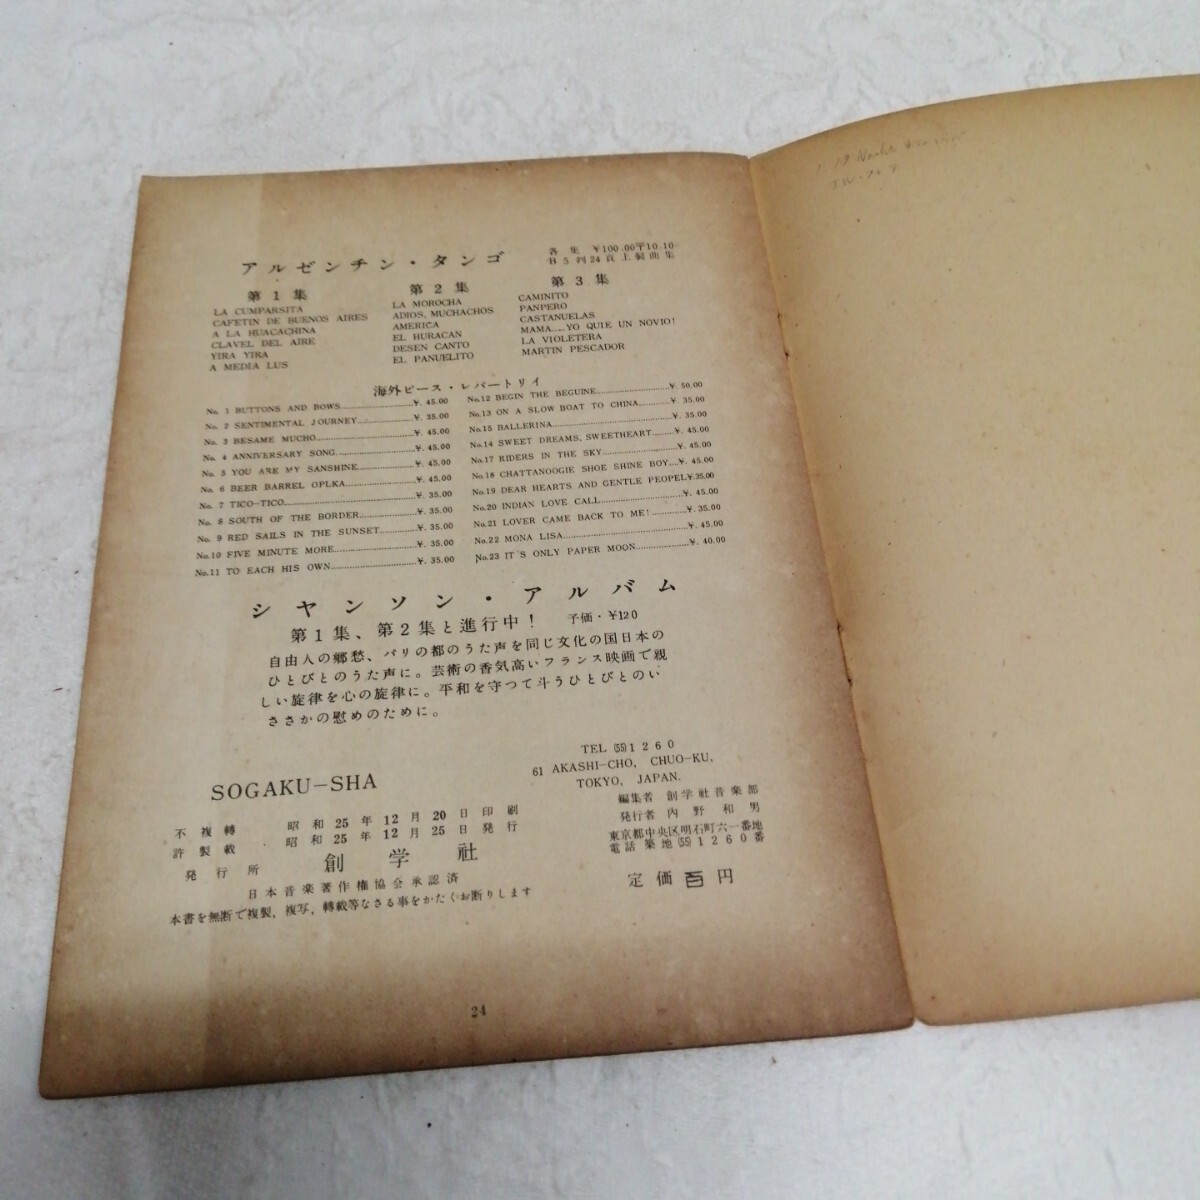 アルゼンチン・タンゴ
各集 ¥100.00〒10.10
B5判24頁上製曲集
第1集
LA CUMPARSITA
CAFETIN DE BUENOS AIRES
A LA HUACACHINA
CLAVEL DEL AIRE
YIRA YIRA
A MEDIA LUS
第2集
LA MOROCHA
ADIOS, MUCHACHOS
AMERICA
EL HURACAN
DESEN CANTO
EL PANUELITO
第3集
CAMINITO
PANPERO
CASTANUELAS
MAMA.....YO QUIE UN NOVIO!
LA VIOLETERA
MARTIN PESCADOR
海外ピース・レパートリイ
No. 1 BUTTONS AND BOWS......¥. 45.00
No. 2 SENTIMENTAL JOURNEY......¥. 35.00
No. 3 BESAME MUCHO......¥. 45.00
No. 4 ANNIVERSARY SONG......¥. 45.00
No. 5 YOU ARE MY SANSHINE......¥. 45.00
No. 6 BEER BARREL OPLKA......¥. 45.00
No. 7 TICO-TICO......¥. 35.00
No. 8 SOUTH OF THE BORDER......¥. 35.00
No. 9 RED SAILS IN THE SUNSET......¥. 35.00
No.10 FIVE MINUTE MORE......¥. 35.00
No.11 TO EACH HIS OWN......¥. 35.00
No.12 BEGIN THE BEGUINE......¥. 50.00
No.13 ON A SLOW BOAT TO CHINA......¥. 35.00
No.15 BALLERINA......¥. 35.00
No.14 SWEET DREAMS, SWEETHEART......¥. 45.00
No.17 RIDERS IN THE SKY......¥. 45.00
No.18 CHATTANOOGIE SHOE SHINE BOY......¥. 45.00
No.19 DEAR HEARTS AND GENTLE PEOPEL¥.35.00
No.20 INDIAN LOVE CALL......¥. 45.00
No.21 LOVER CAME BACK TO ME!......¥. 35.00
No.22 MONA LISA......¥. 45.00
No.23 IT'S ONLY PAPER MOON......¥. 40.00
シヤンソン・アルバム
第1集、第2集と進行中! 予価・¥120
自由人の郷愁、パリの都のうた声を同じ文化の国日本の
ひとびとのうた声に。芸術の香気高いフランス映画で親
しい旋律を心の旋律に。平和を守つて斗うひとびとのい
ささかの慰めのために。
SOGAKU-SHA
TEL (55) 1260
61 AKASHI-CHO, CHUO-KU,
TOKYO, JAPAN.
不複轉
許製載
昭和25年12月20日印刷
昭和25年12月25日発行
発行所 創学社
日本音楽著作権協会承認済
本書を無断で複製，複写，轉載等なさる事をかたくお断りします
編集者 創学社音楽部
発行者 内野和男
東京都中央区明石町六一番地
電話築地(55)1260番
定価百円
24